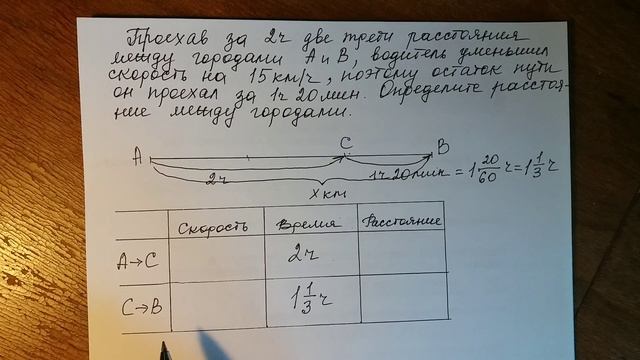 Проехав за 2ч две трети расстояния
между городами А и В, водитель уменьшил
скорость на 15 км/ч, поэтому остаток пути
он проехал за 1ч 20 мин. Определите расстоя-
ние между городами.
А С В
2ч 1ч 20мин = 1 20/60 ч = 1 1/3 ч
х км
Скорость Время Расстояние
А→С 2ч
С→В 1 1/3 ч